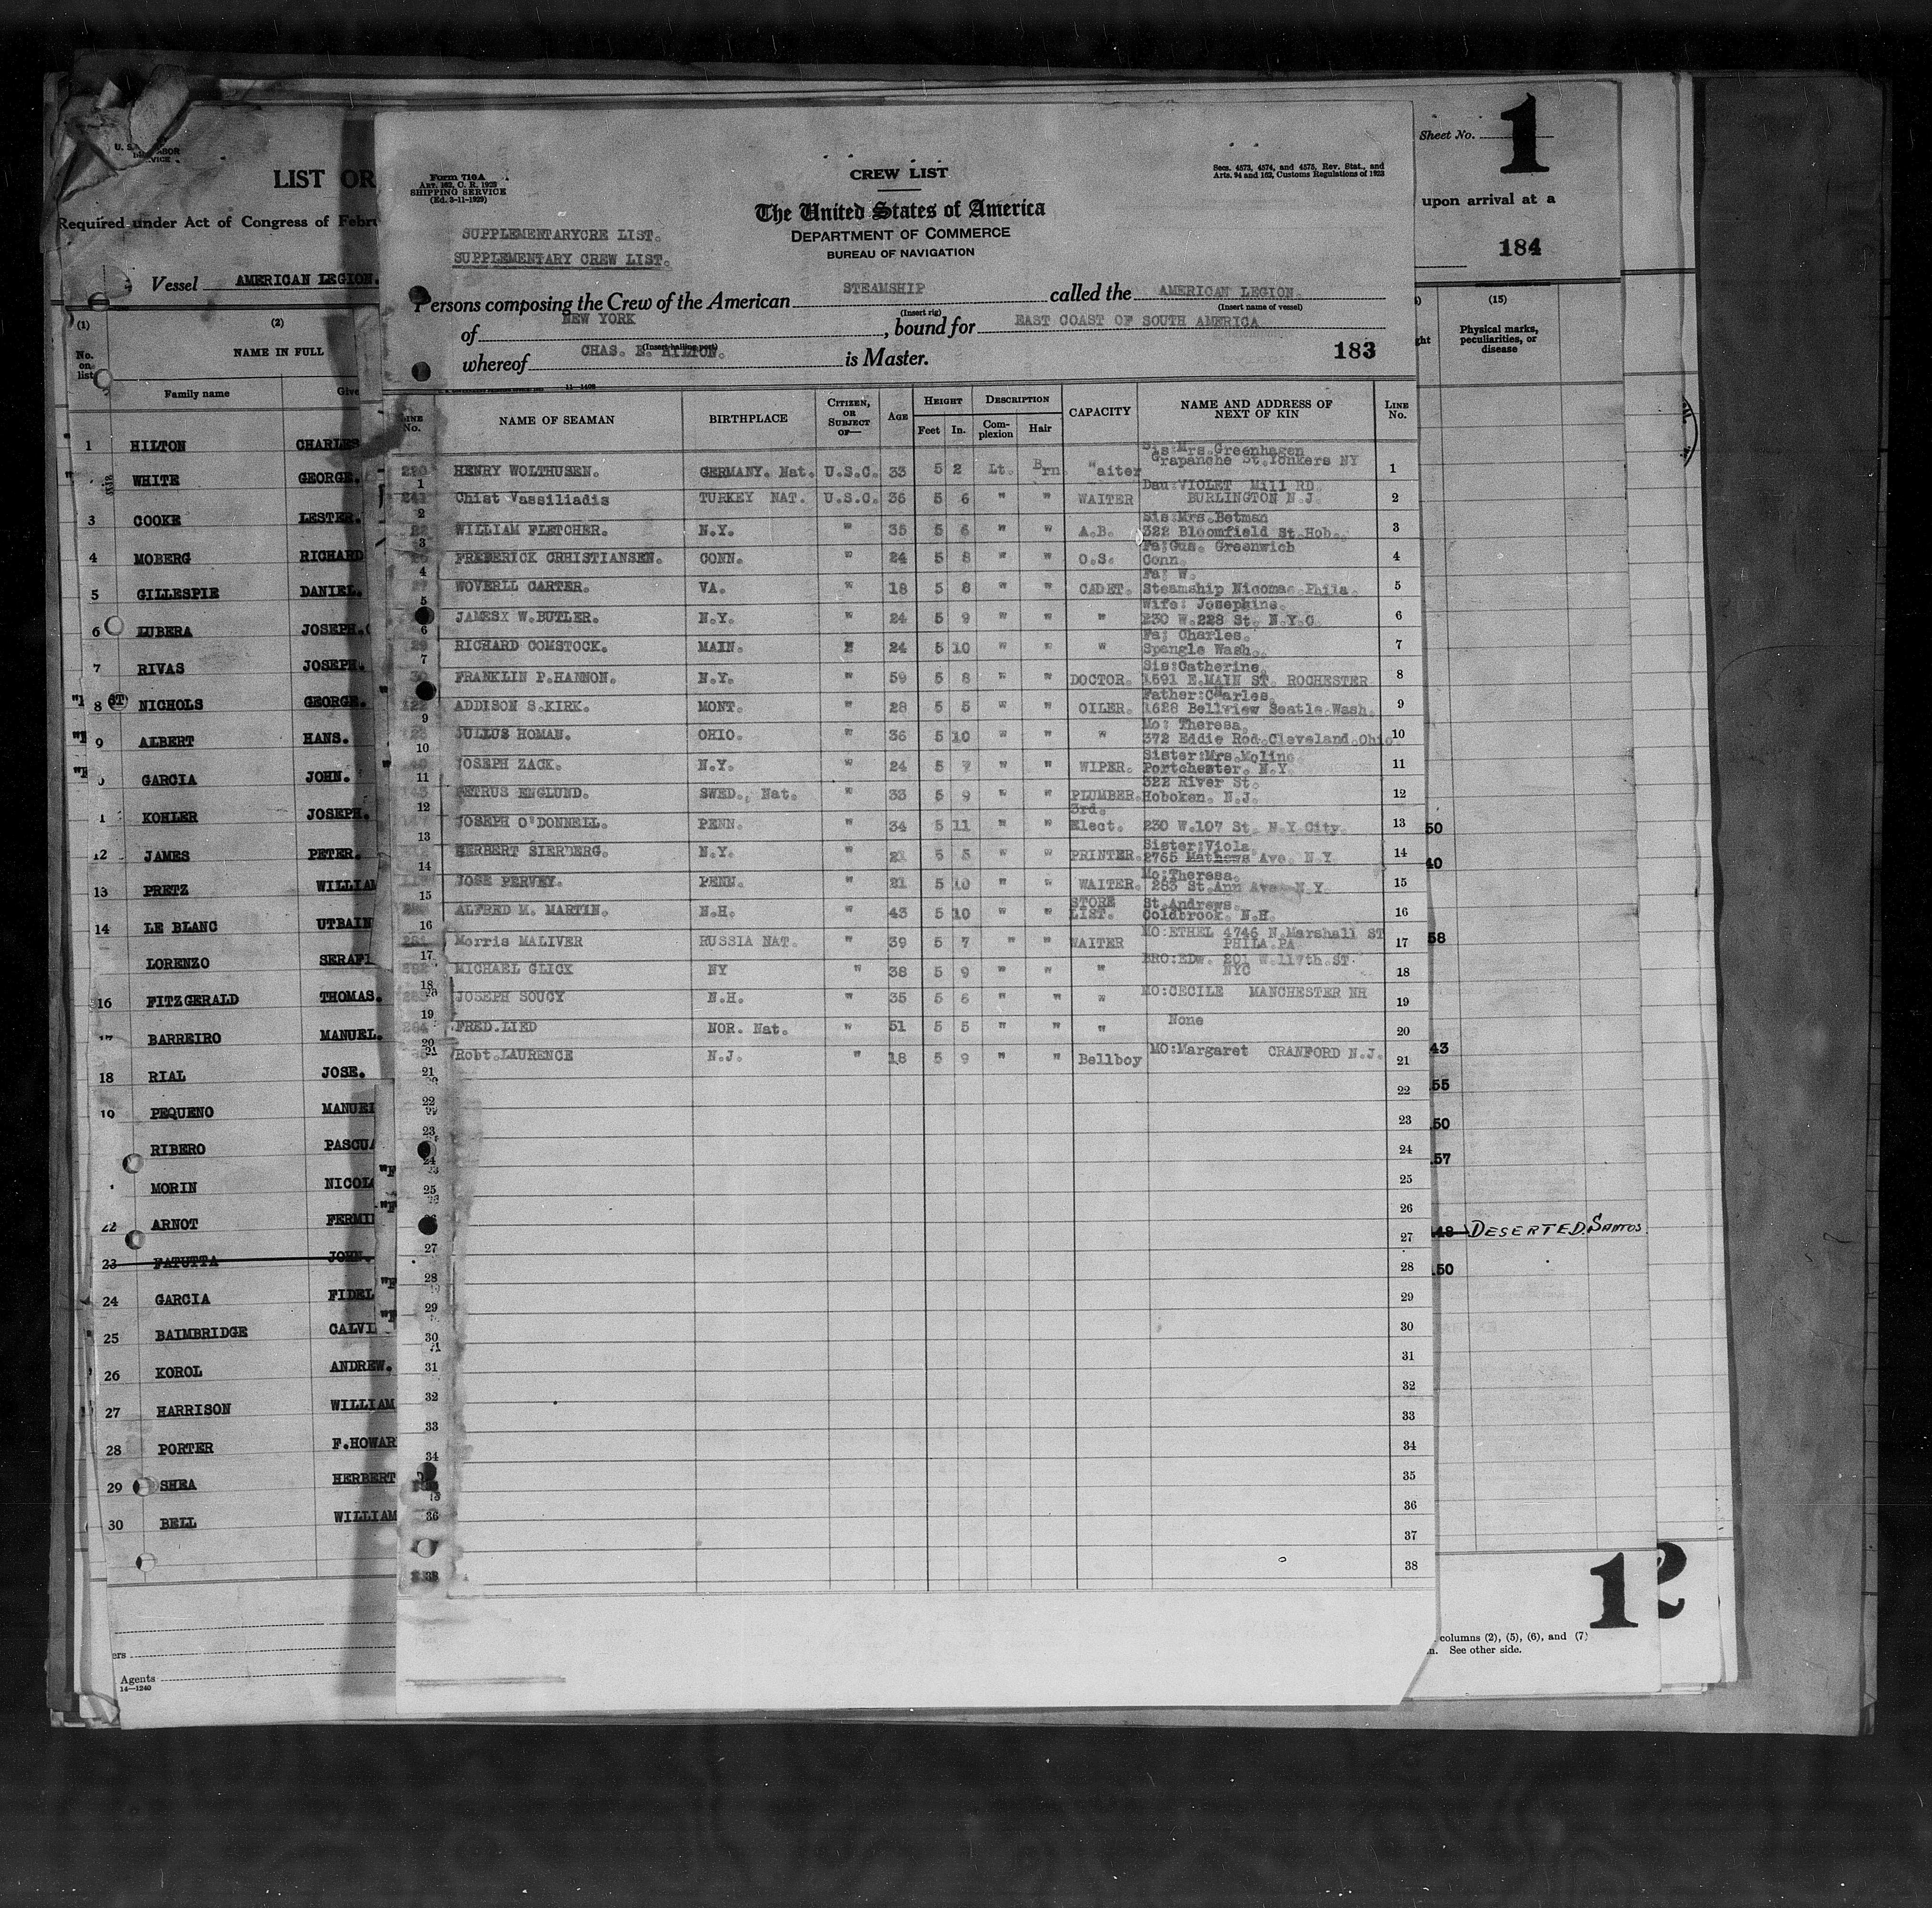 CREW LIST
Form 710A
ART. 162, C. R. 1923
SHIPPING SERVICE
(Ed. 3-11-1929)
Secs. 4573, 4574, and 4575, Rev. Stat., and
Arts. 94 and 162, Customs Regulations of 1923
The United States of America
DEPARTMENT OF COMMERCE
BUREAU OF NAVIGATION
SUPPLEMENTARYCRE LIST.
SUPPLEMENTARY CREW LIST.
Persons composing the Crew of the American STEAMSHIP called the AMERICAN LEGION.
(Insert rig) (Insert name of vessel)
of NEW YORK, bound for EAST COAST OF SOUTH AMERICA
(Insert hailing port)
whereof CHAS. E. HILTON. is Master. 183
LINE No. NAME OF SEAMAN BIRTHPLACE CITIZEN, OR SUBJECT OF— AGE HEIGHT Feet In. DESCRIPTION Complexion Hair CAPACITY NAME AND ADDRESS OF NEXT OF KIN LINE No.
Sis:Mrs.Greenhagen
1 HENRY WOLTHUSEN. GERMANY. Nat. U.S.C. 33 5 2 Lt. Brn. "aiter Grapanche St.Yonkers NY 1
Dau:VIOLET Mill RD.
2 Chist Vassiliadis TURKEY NAT. U.S.C. 36 5 6 " " WAITER BURLINGTON N.J. 2
Sis:Mrs.Betman
3 WILLIAM FLETCHER. N.Y. " 35 5 6 " " A.B. 322 Bloomfield St.Hob. 3
Fa;Gus. Greenwich
4 FREDERICK CRHISTIANSEN. CONN. " 24 5 8 " " O.S. Conn. 4
Fa; W.
5 WOVERLL CARTER. VA. " 18 5 8 " " CADET. Steamship Nicomac.Phila. 5
Wife: Josephine.
6 JAMESX W.BUTLER. N.Y. " 24 5 9 " " " 230 W.228 St. N.Y.C 6
Fa; Charles.
7 RICHARD COMSTOCK. MAIN. " 24 5 10 " " " Spangle Wash. 7
Sis:Catherine
8 FRANKLIN P.HANNON. N.Y. " 59 5 8 " " DOCTOR. 1591 E.MAIN ST. ROCHESTER 8
Father:Charles.
9 ADDISON S.KIRK. MONT. " 28 5 5 " " OILER. 1628 Bellview Seatle.Wash. 9
Mo: Theresa.
10 JULLUS HOMAN. OHIO. " 36 5 10 " " " 372 Eddie Rod.Cleveland.Ohio. 10
Sister:Mrs.Moline
11 JOSEPH ZACK. N.Y. " 24 5 7 " " WIPER. Portchester. N.Y. 11
322 River St.
12 PETRUS ENGLUND. SWED., Nat. " 33 5 9 " " PLUMBER. Hoboken. N.J. 12
3rd.
13 JOSEPH O'DONNELL. PENN. " 34 5 11 " " Elect. 230 W.107 St. N.Y.City. 13
Sister:Viola.
14 HERBERT SIERDERG. N.Y. " 21 5 5 " " PRINTER. 2765 Mathews Ave. N.Y 14
Mo;Theresa.
15 JOSE PERVEY. PENN. " 21 5 10 " " WAITER. 253 St.Ann Ave. N.Y. 15
STORE St.Andrews.
16 ALFRED M. MARTIN. N.H. " 43 5 10 " " LIST. Coldbrook. N.H. 16
MO:ETHEL 4746 N.Marshall ST
17 Morris MALIVER RUSSIA NAT. " 39 5 7 " " WAITER PHILA.PA 17
BRO:EDw. 201 W.117th.ST.
18 MICHAEL GLICK NY " 38 5 9 " " " NYC 18
19 JOSEPH SOUCY N.H. " 35 5 6 " " " MO:CECILE MANCHESTER NH 19
20 FRED.LIED NOR. Nat. " 51 5 5 " " " None 20
21 Robt.LAURENCE N.J. " 18 5 9 " " Bellboy MO:Margaret CRANFORD N.J. 21
22
23
24
25
26
27
28
29
30
31
32
33
34
35
36
37
38
LIST OR
Required under Act of Congress of Febru
Vessel AMERICAN LEGION.
(1) (2)
No. on list NAME IN FULL
Family name Give
1 HILTON CHARLES
WHITE GEORGE.
3 COOKE LESTER.
4 MOBERG RICHARD
5 GILLESPIE DANIEL.
6 LUBERA JOSEPH.
7 RIVAS JOSEPH.
8 NICHOLS GEORGE.
9 ALBERT HANS.
GARCIA JOHN.
KOHLER JOSEPH.
12 JAMES PETER.
13 PRETZ WILLIAM
14 LE BLANC UTBAIN
LORENZO SERAFI
16 FITZGERALD THOMAS.
17 BARREIRO MANUEL.
18 RIAL JOSE.
19 PEQUENO MANUEL
RIBERO PASCUA
MORIN NICOLA
22 ARNOT FERMI
23 FATUTTA JOHN.
24 GARCIA FIDEL
25 BAIMBRIDGE CALVI
26 KOROL ANDREW.
27 HARRISON WILLIAM
28 PORTER F.HOWAR
29 SHEA HERBERT
30 BELL WILLIAM
Agents
14—1240
Sheet No. 1
upon arrival at a
184
(15)
Physical marks, peculiarities, or disease
50
40
58
43
55
50
57
48 DESERTED. SANTOS.
50
12
columns (2), (5), (6), and (7)
See other side.